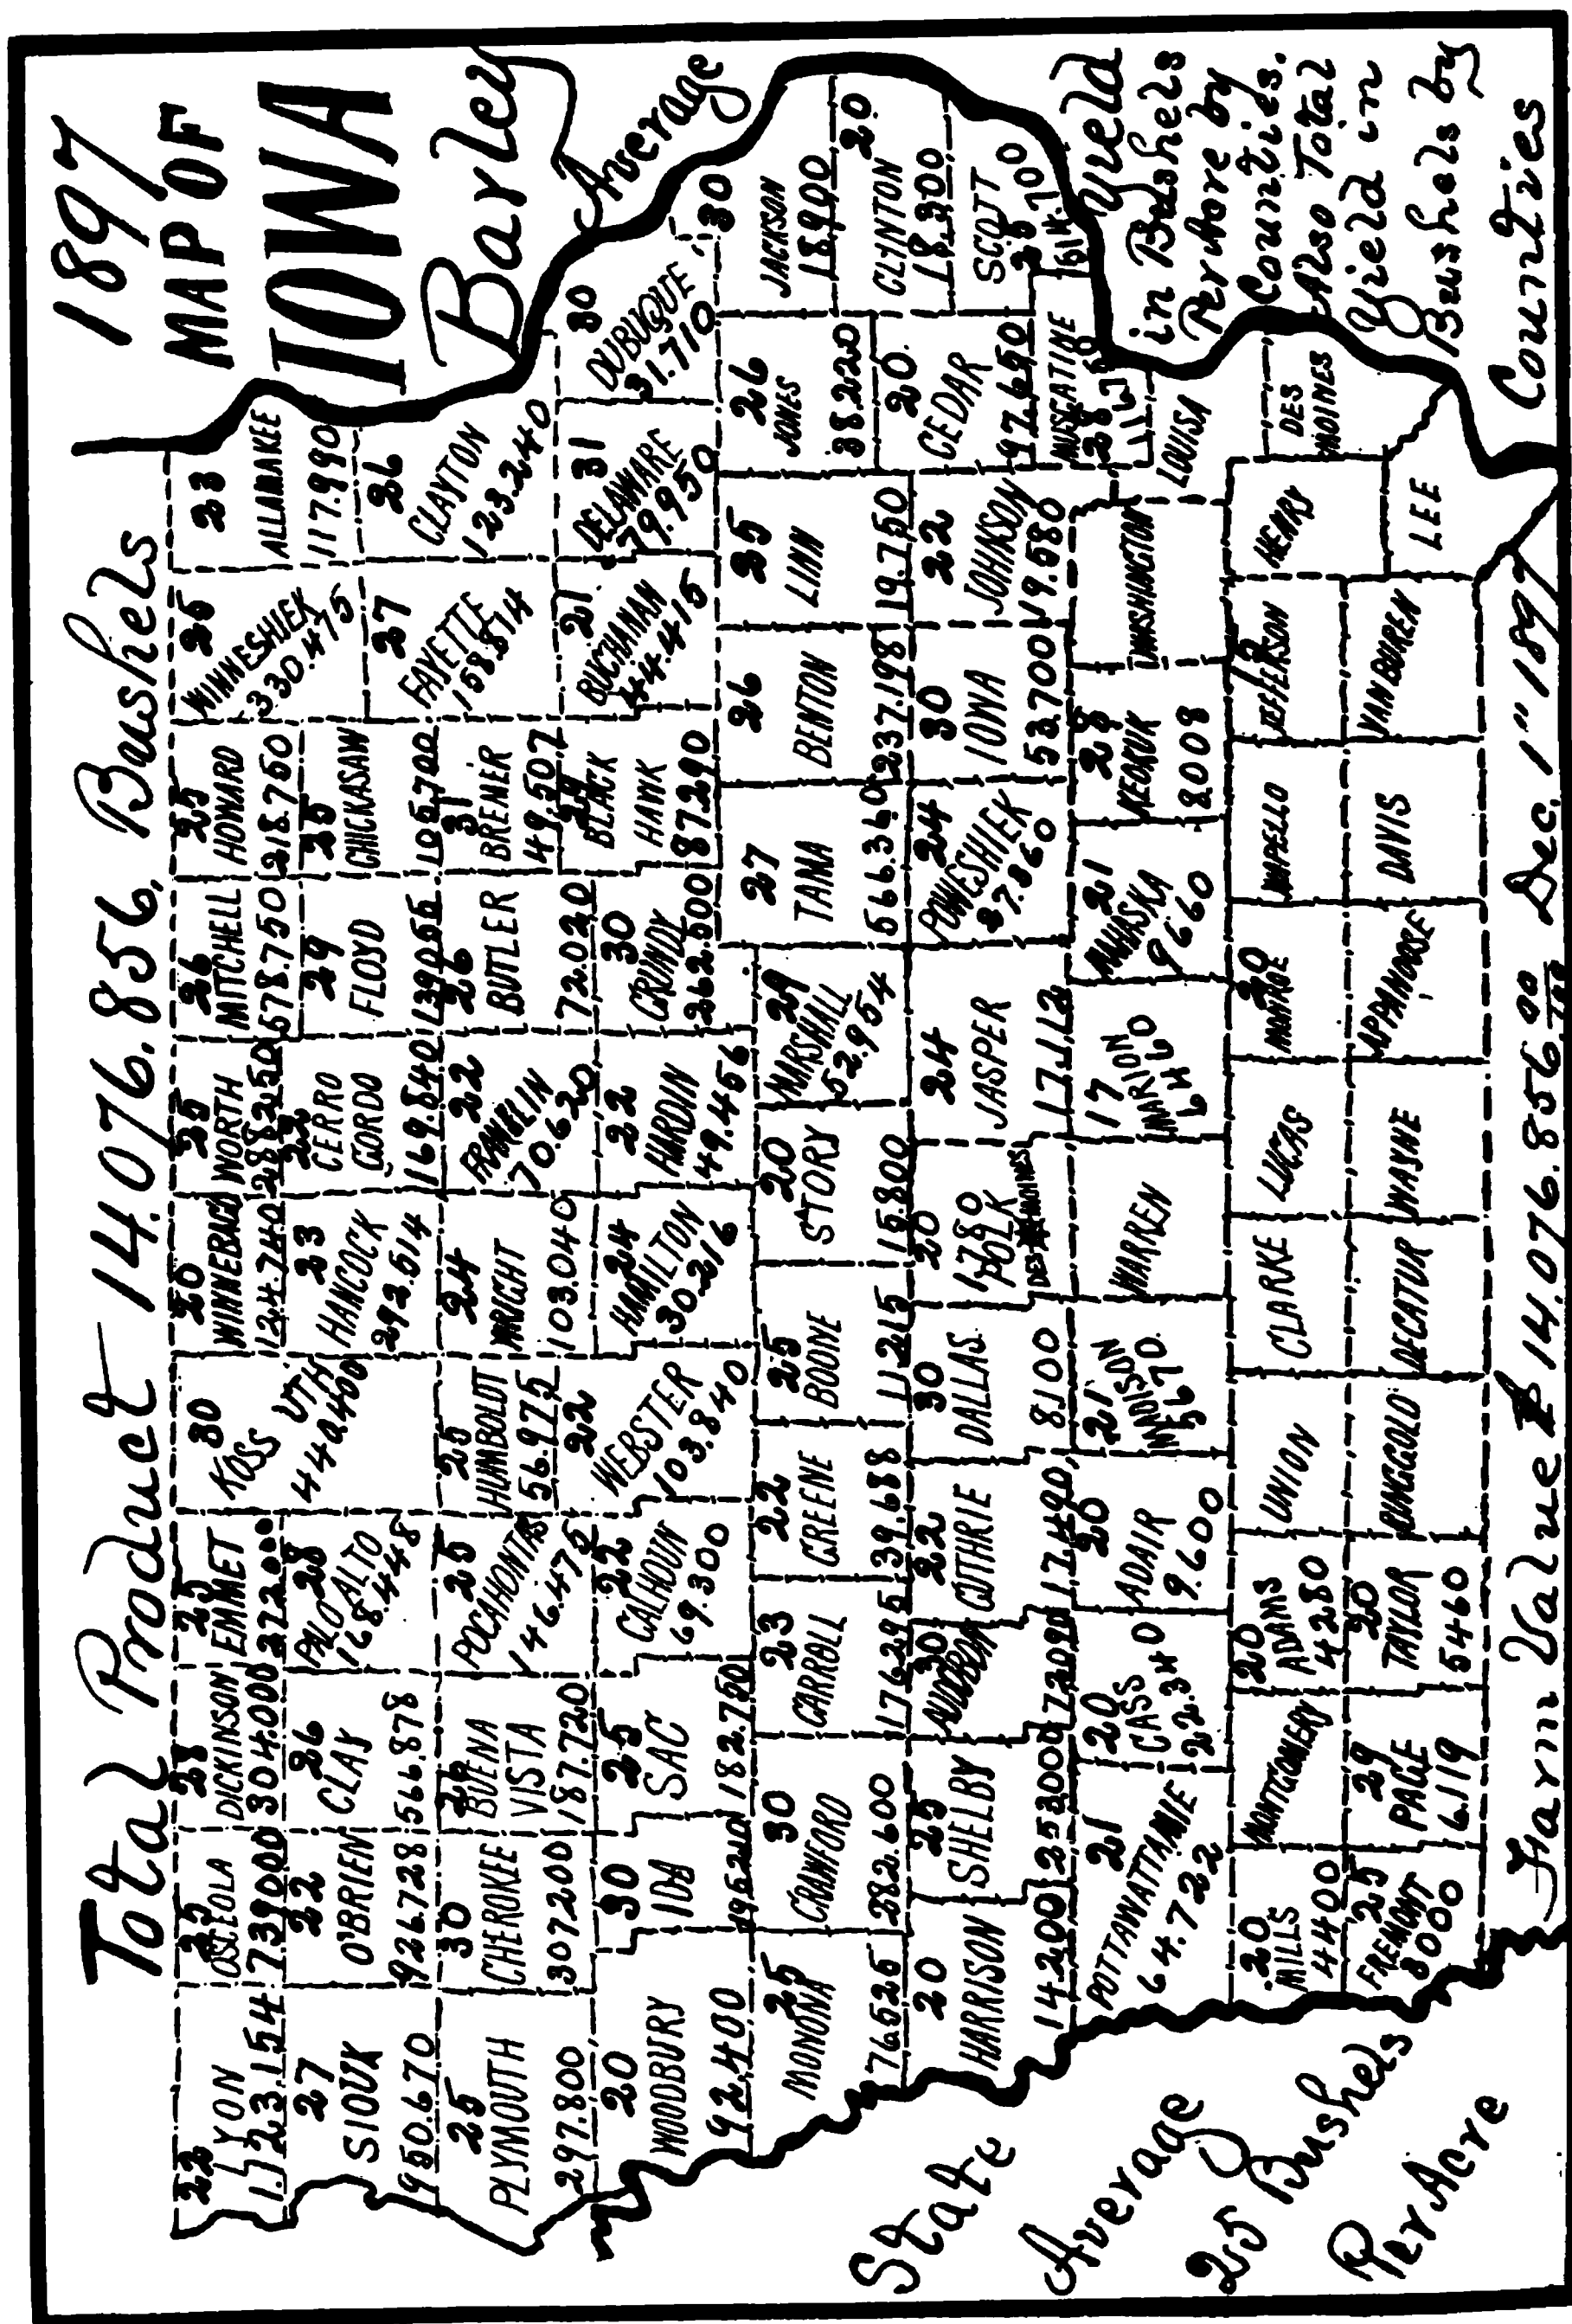 Total Product 14.076.856, Bushels
1897
MAP OF
IOWA
Barley
Average
Yield
in Bushels
Per Acre by
Counties.
Also Total
Yield in
Bushels by
Counties
22
LYON
1.123.154
25
OSCEOLA
739000
28
DICKINSON
304.000
25
EMMET
30
KOSS
UTH
440.400
20
WINNEBAGO
124.740
25
WORTH
288250
26
MITCHELL
578.750
25
HOWARD
218.750
25
WINNESHIEK
330.475
23
ALLAMAKEE
117.990
27
SIOUX
950.670
22
O'BRIEN
926.728
26
CLAY
566.878
28
PALO ALTO
168.448
23
HANCOCK
292.514
22
CERRO
GORDO
169.840
29
FLOYD
139055
25
CHICKASAW
105.700
27
FAYETTE
158.874
26
CLAYTON
123.240
25
PLYMOUTH
297.800
30
CHEROKEE
307200
26
BUENA
VISTA
187.720
25
POCAHONTAS
146.475
25
HUMBOLDT
56.975
24
WRIGHT
103.040
22
FRANKLIN
70.620
26
BUTLER
72020
31
BREMER
49.507
21
BUCHANAN
44.415
31
DELAWARE
79.950
30
DUBUQUE
31.710
20
WOODBURY
92.400
30
IDA
25
SAC
182.750
22
CALHOUN
69.300
22
WEBSTER
103.840
24
HAMILTON
30.216
22
HARDIN
49.456
30
GRUNDY
262.500
29
BLACK
HAWK
87.290
26
JONES
38.220
30
JACKSON
18.900
25
MONONA
76.525
30
CRAWFORD
282.600
23
CARRALL
17.6295
22
GREENE
39.688
25
BOONE
11215
20
STORY
15800
29
MARSHALL
52.954
27
TAMA
566.340
26
BENTON
237.198
25
LINN
19.750
20
CEDAR
97.650
20
CLINTON
18.300
SCOTT
20
HARRISON
14200
25
SHELBY
253000
30
AUDUBON
72090
22
GUTHRIE
17.490
30
DALLAS
8.100
20
1.780
POLK
DES MOINES
24
JASPER
17.112
24
POWESHIEK
37.860
30
IOWA
53.700
22
JOHNSON
19.580
28
MUSCATINE
21
POTTAWATTAMIE
64.722
20
CASS
22.340
20
ADAIR
9.600
21
MADISON
5670
WARREN
17
MARION
6460
21
MAHASKA
9660
28
KEOKUK
8008
WASHINGTON
LOUISA
20
MILLS
4400
MONTGOMERY
20
ADAMS
4280
UNION
CLARKE
LUCAS
20
MONROE
WAPELLO
JEFFERSON
HENRY
DES
MOINES
25
FREMONT
8000
29
PAGE
6.119
20
TAYLOR
5460
RINGGOLD
DECATUR
WAYNE
APPANOOSE
DAVIS
VAN BUREN
LEE
State
Average
25 Bushels
Per Acre
Farm Value $ 14.076.856.00 Dec. 1" 1897